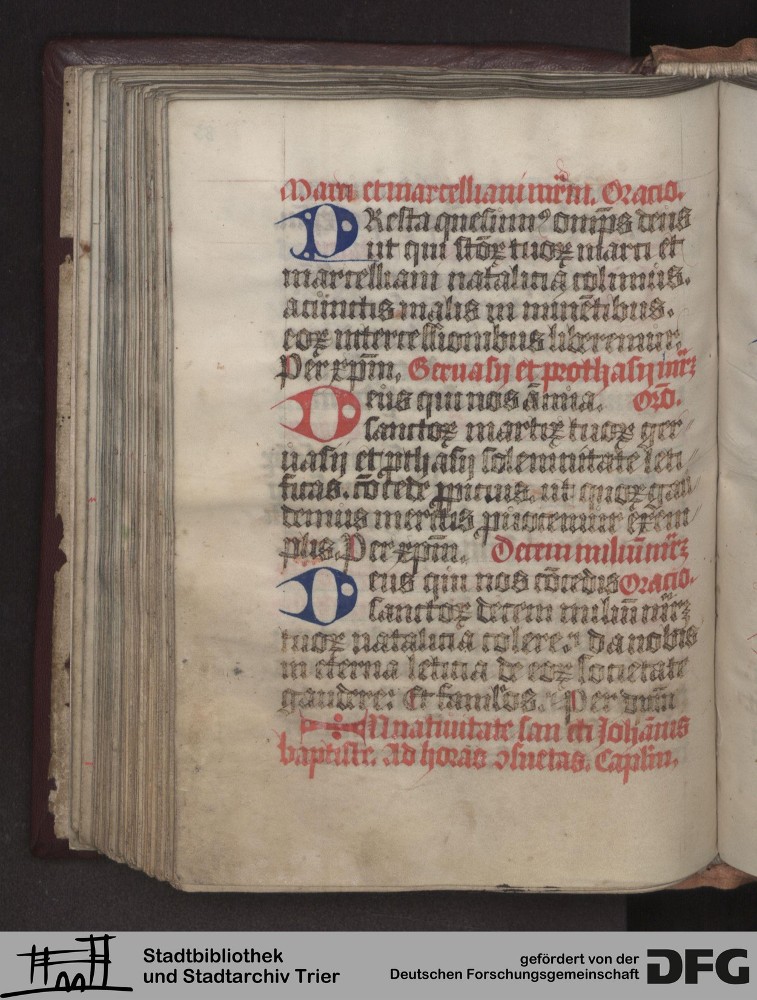 Marci et marcelliani mr̄m. Oracio.
PResta quesumꝰ om̄ps deus
ut qui sc̄oꝝ tuoꝝ marci et
marcelliani natalicia colimus.
a cunctis malis in minētibus.
eoꝝ intercessionibus liberemur.
Per xp̄m. Geruasij et prothasij mr̄ꝝ
Deus qui nos ānua. Orō.
sanctoꝝ martiꝝ tuoꝝ ger
uasij et ꝓthasij solemnitate leti
ficas. cōcede ꝓpicius. ut quoꝝ gau
demus meritis ꝓuocemur exem
plis. Per xp̄m. Decem miliū mr̄ꝝ
Deus qui nos cōcedis Oracio.
sanctoꝝ decem miliū mr̄ꝝ
tuoꝝ natalicia colere. da nobis
in eterna leticia de eoꝝ societate
gaudere: Et famlōs. Per dn̄m
In natiuitate san cti Johānis
baptiste. Ad horas ꝯsuetas. Caplm̄.
Stadtbibliothek
und Stadtarchiv Trier
gefördert von der
Deutschen Forschungsgemeinschaft
DFG